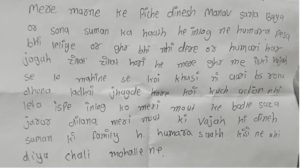 Mere marne ke Piche dinesh Manav sarla Baya
or sona suman ka haath he inlog ne humara pesa
bhi leliye or ghr bhi nhi dere or humari har
jagah होना होना hori he mere ghr me
se 10 mahine se koi khusi ni aari bs rona
dhona ladhi jhagde horr koi kuch action nhi
lelo ispe inlog ko meri mout ke badle saza
jarur dilana meri mout ki vajah hi dinesh
suman ki family h humara saath kisi ne nhi
diya chali mohalle ne